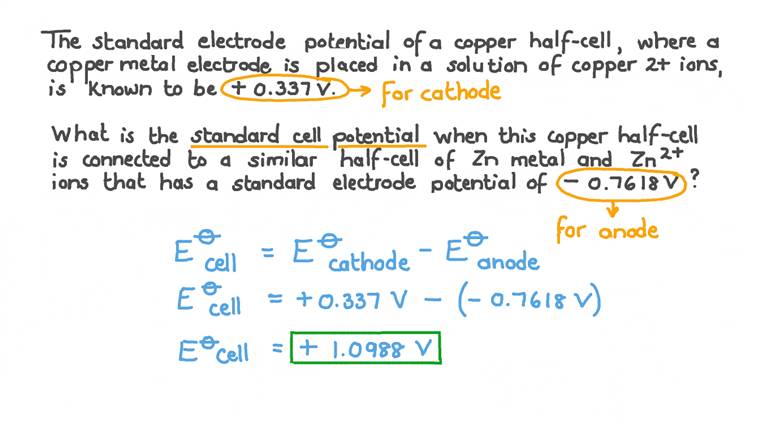 The standard electrode potential of a copper half-cell, where a
copper metal electrode is placed in a solution of copper 2+ ions,
is known to be + 0.337 V. → for cathode
What is the standard cell potential when this copper half-cell
is connected to a similar half-cell of Zn metal and Zn²⁺
ions that has a standard electrode potential of − 0.7618 V ?
for anode
E⦵cell = E⦵cathode − E⦵anode
E⦵cell = +0.337 V − (− 0.7618 V)
E⦵cell = + 1.0988 V